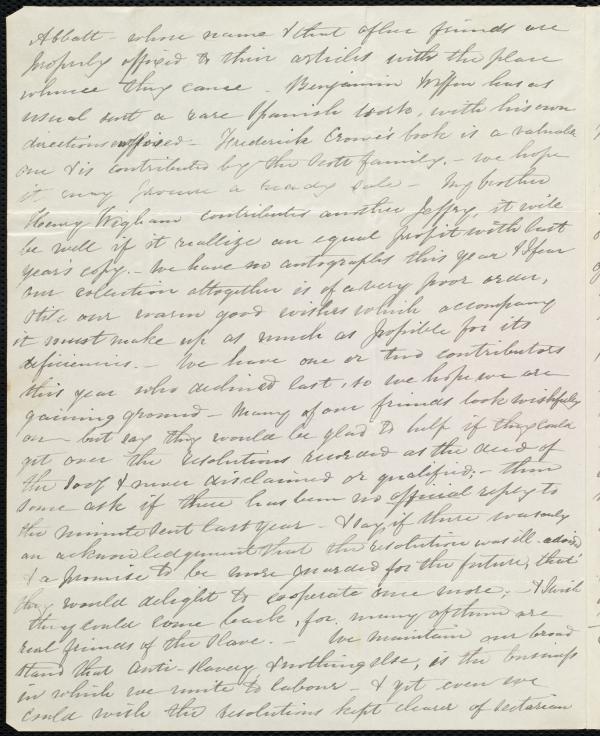 Abbott - whose name & that of her friends are
properly affixed to their articles with the place
whence they came - Benjamin Wiffen has as
usual sent a rare Spanish work, with his own
directions affixed - Frederick Crowe's book is a valuable
one & is contributed by the Scott family, - we hope
it may procure a ready sale - My brother
Henry Wigham contributes another Jeffry, it will
be well if it reallize an equal profit with last
years copy. - We have no autographs this year & I fear
our collection altogether is of a very poor order,
still our warm good wishes which accompany
it must make up as much as possible for its
deficiencies. - We have one or two contributors
this year who declined last, so we hope we are
gaining ground - Many of our friends look wishfully
on - but say they would be glad to help if they could
get over the resolutions recorded as the deed of
the Socy & never disclaimed or qualified; - then
some ask if there has been no official reply to
the minute sent last year - & say, if there was only
an acknowledgement that the resolution was ill-advised
& a promise to be more guarded for the future, that
they would delight to cooperate once more; - & I wish
they could come back, for many of them are
real friends of the slave. - We maintain our broad
stand that anti-slavery & nothing else, is the business
in which we unite to labour - & yet even we
could wish the resolutions kept clearer of sectarian